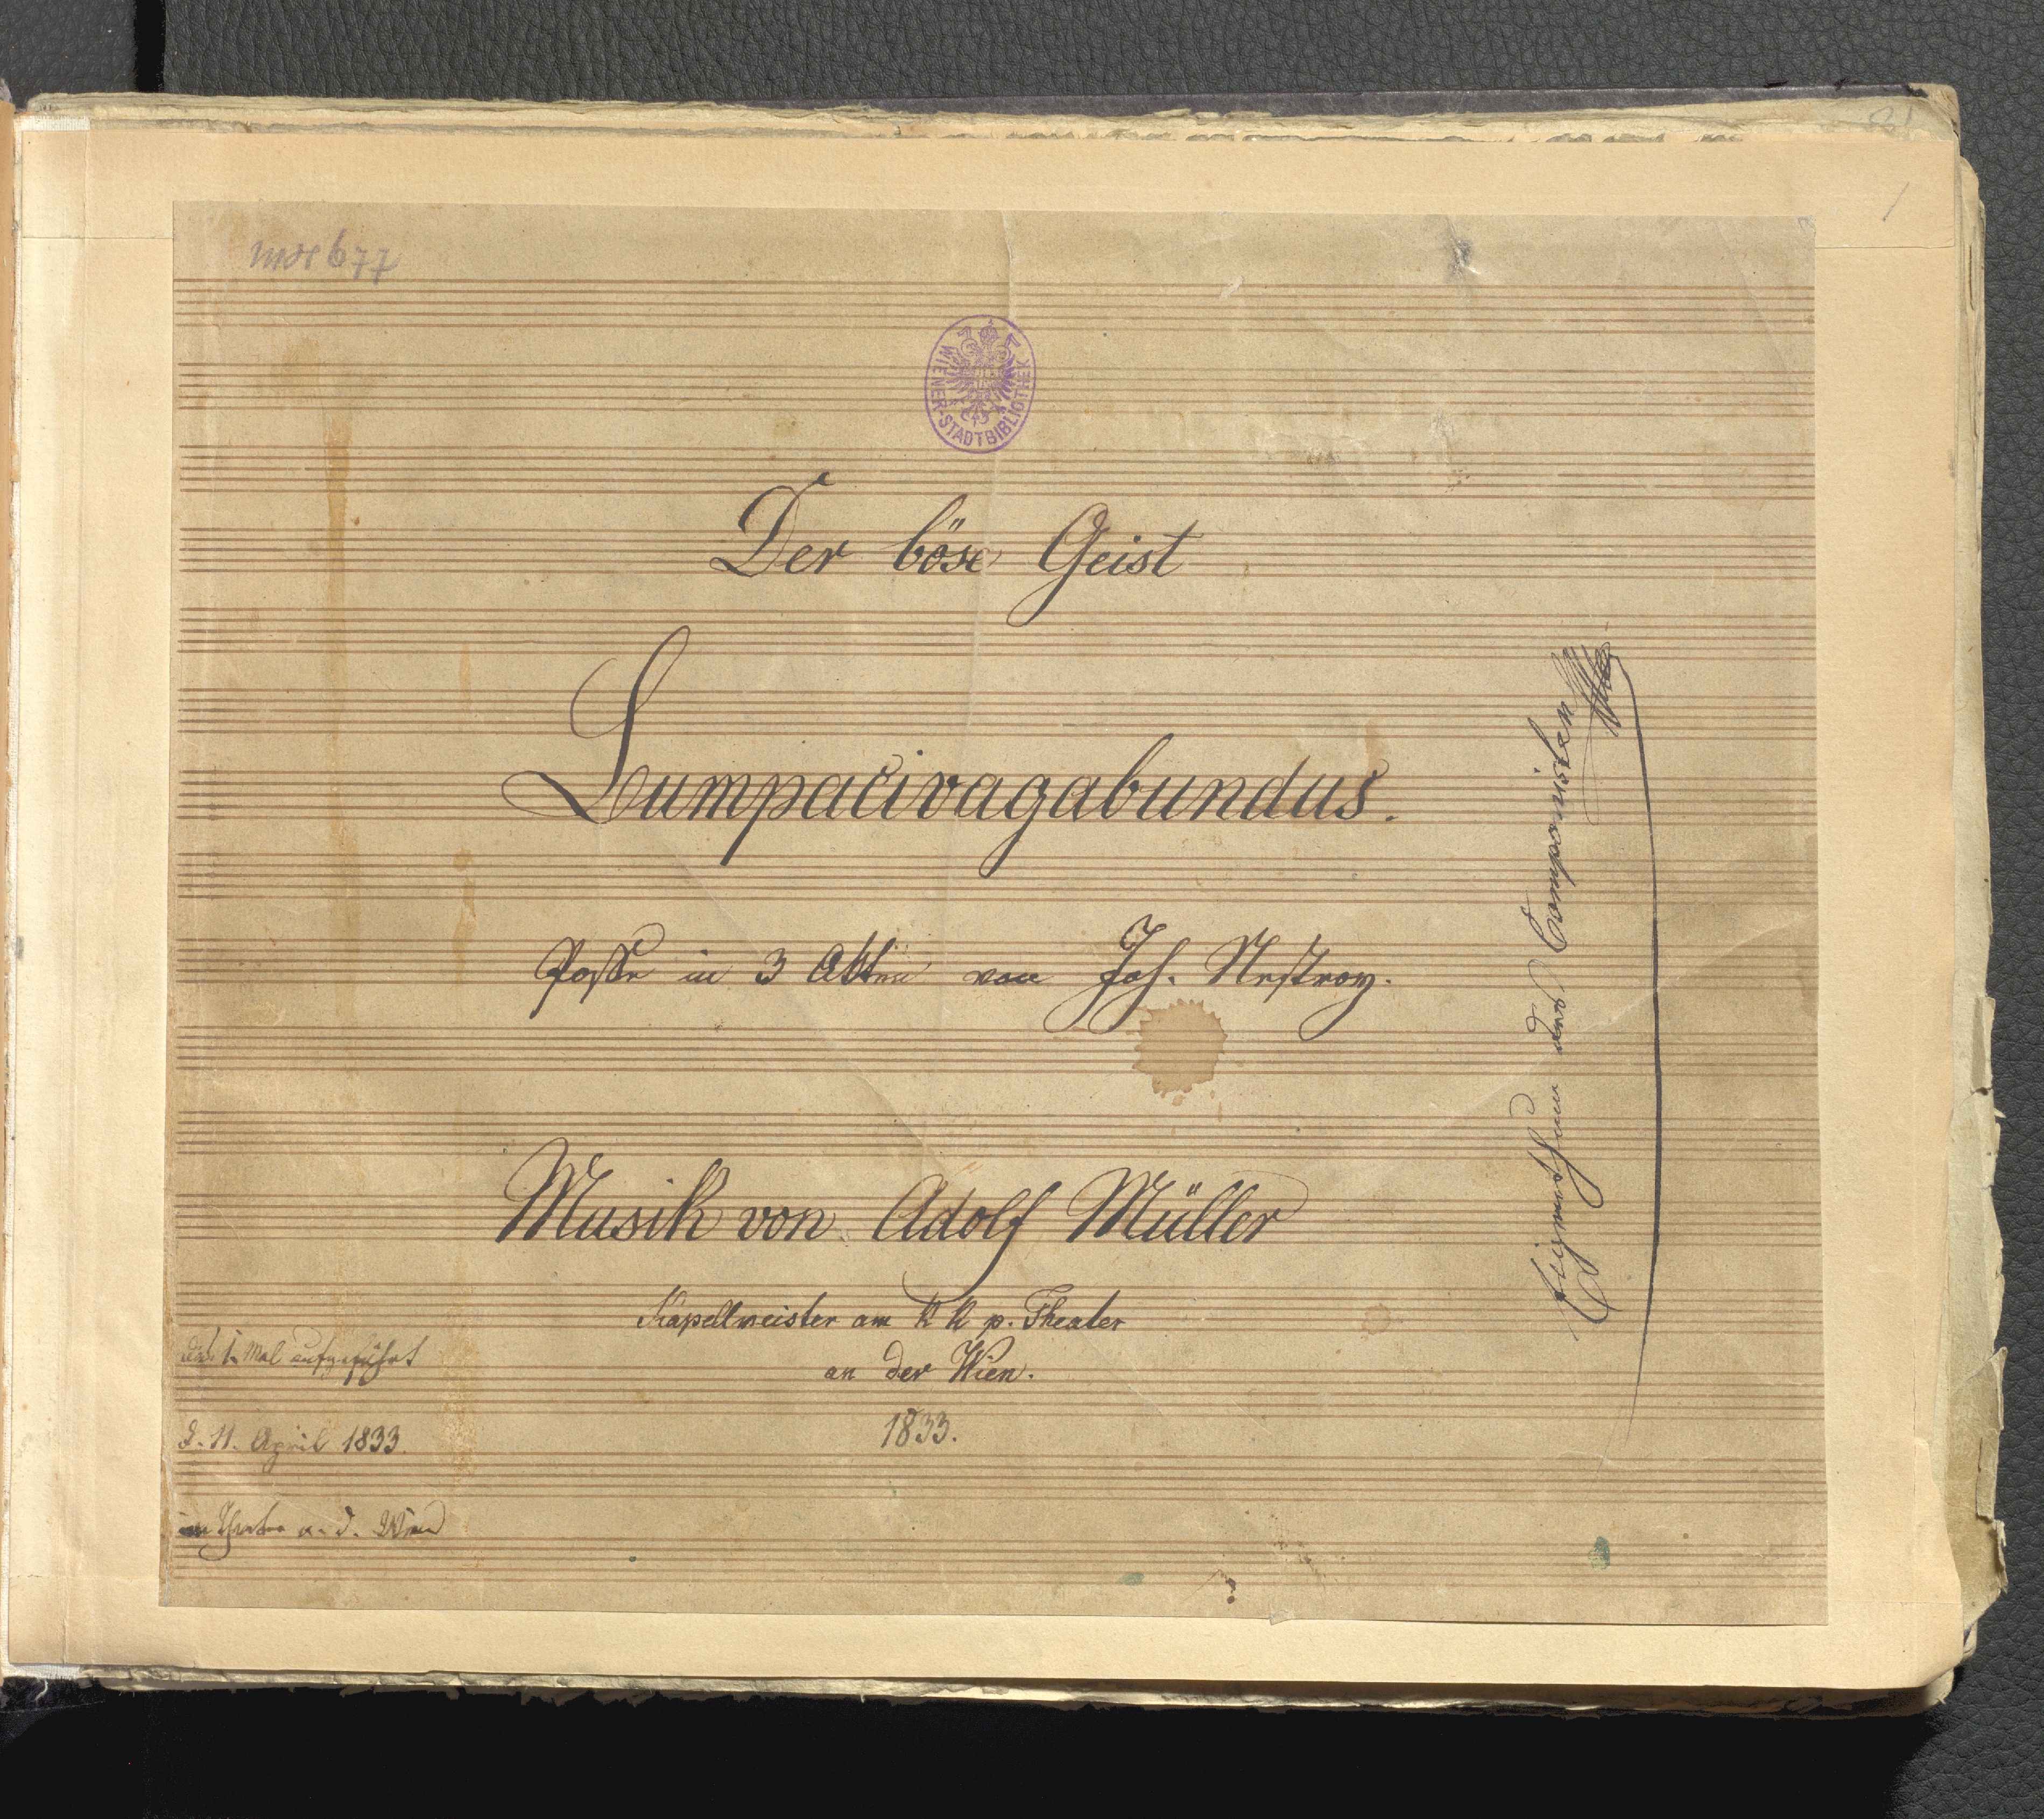 MH 677
1
WIENER-STADTBIBLIOTHEK
Der böse Geist
Lumpacivagabundus.
Posse in 3 Akten von Joh. Nestroy.
Eigenthum des Componisten
Musik von Adolf Müller
Kapellmeister am k k p. Theater
an der Wien.
1833.
1. Mal aufgeführt
d. 11. April 1833.
im Theater a. d. Wien